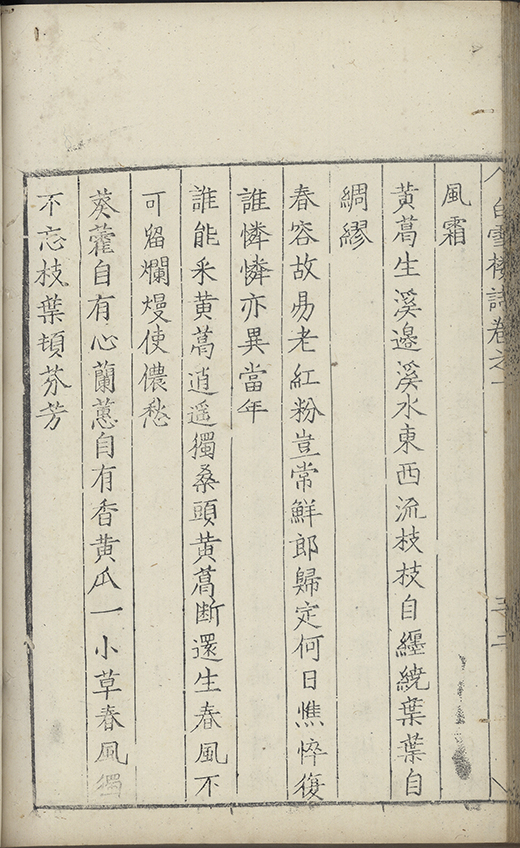 白雪樓詩卷之一
風霜
黄葛生溪邉溪水東西流枝枝自纏繞葉葉自
綢繆
春容故易老紅粉豈常鮮郎歸定何日憔悴復
誰憐憐亦異當年
誰能采黄葛逍遥獨桑頭黄葛断還生春風不
可留爛熳使儂愁
葵藿自有心蘭蕙自有香黄瓜一小草春風獨
不忘枝葉頓芬芳